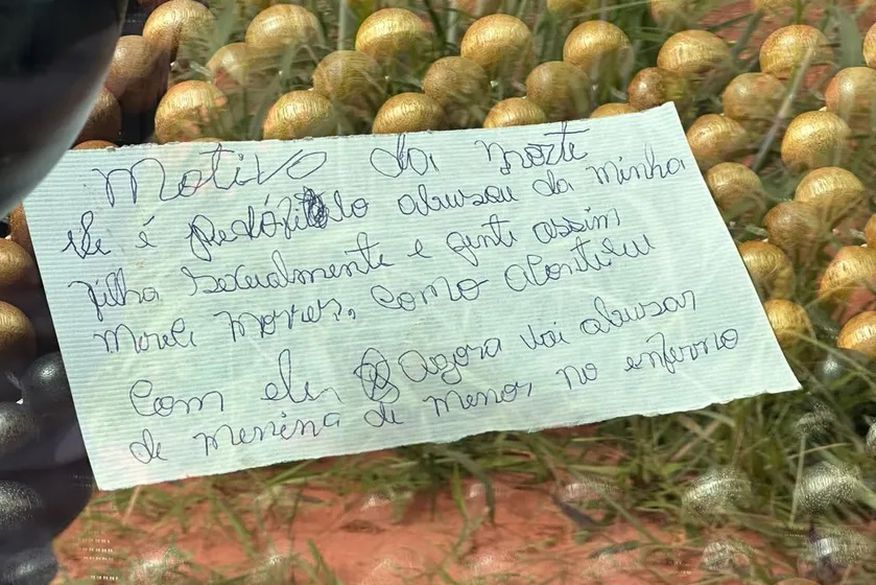 Motivo da morte
ele é pedófilo abusou da minha
filha sexualmente e gente assim
mereci morrer, como aconteceu
com ele, Agora vai abusar
de menina de menor no inferno